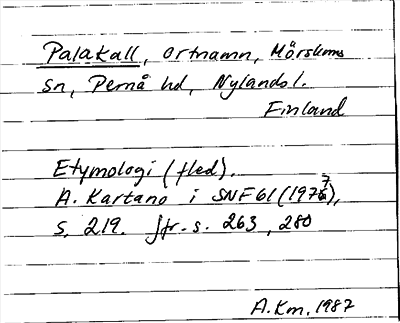 Palakall, ortnamn, Mörskoms
sn, Pernå hd, Nylands l.
Finland
Etymologi (fled).
A. Kartano i SNF 61 (1977),
s. 219. Jfr. s. 263, 280
A.Km. 1987